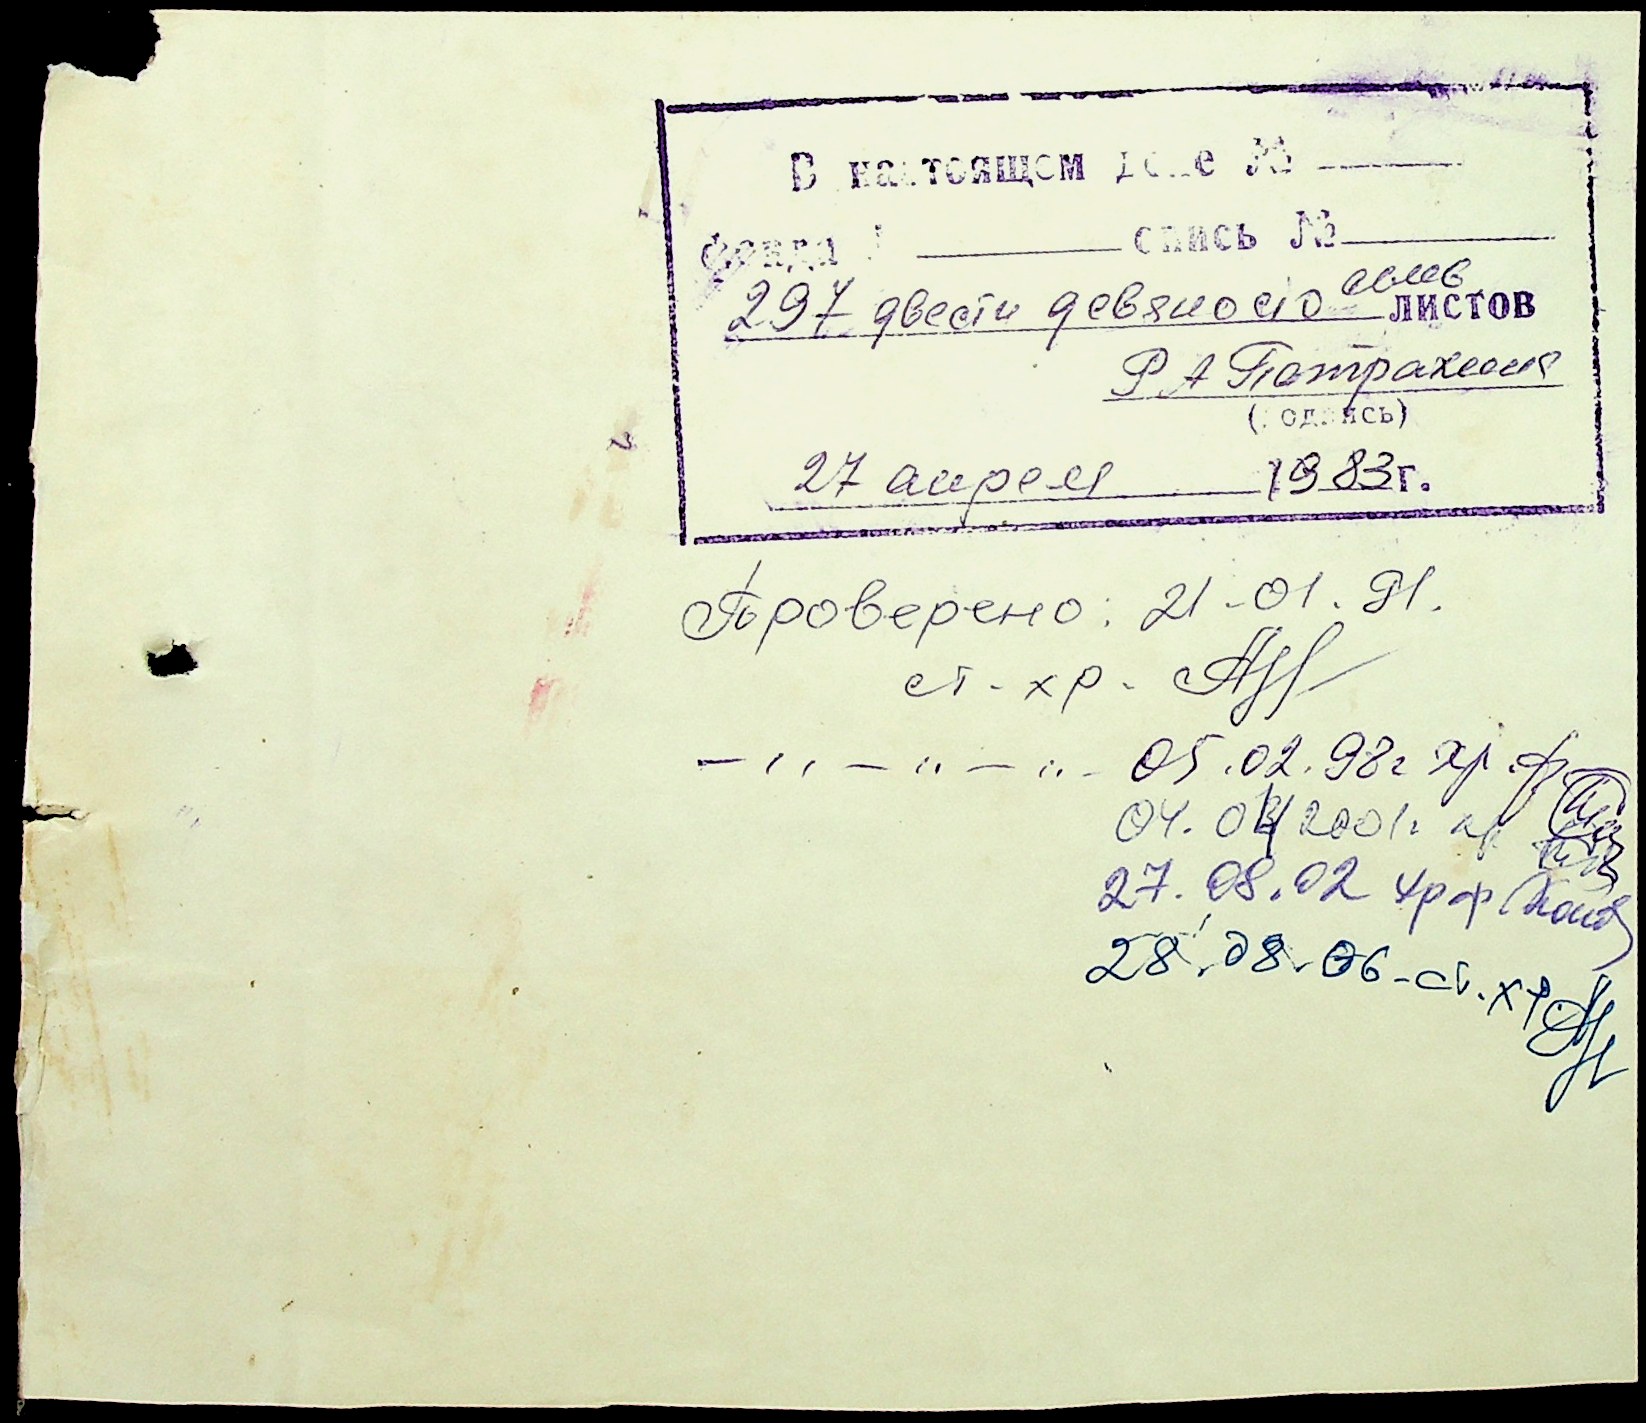 В настоящем деле №
фонда опись №
297 двести девяносто семь листов
Р А Патрахина
(подпись)
27 апреля 1983 г.
Проверено: 21-01.91.
ст-хр-
—,,—,,—,,- 05.02.98г хр.ф
04.04 2001г.
27.08.02 хр ф
28.08.06-ст.хр